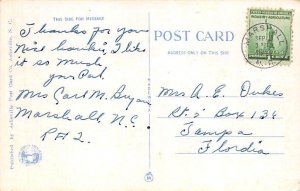 THIS SIDE FOR MESSAGE
Thanks for you
nice hankie, I like
it so much
your Pal
Mrs Carl M. Bryan
Marshall N.C
R#2.
POST CARD
ADDRESS ONLY ON THIS SIDE
MARSHALL
SEP
Mrs A. E. Dukes
Rt. 1 Box 134
Tampa
Flordia
Published by Asheville Post Card Co., Asheville, N. C.
INDUSTRY AGRICULTURE